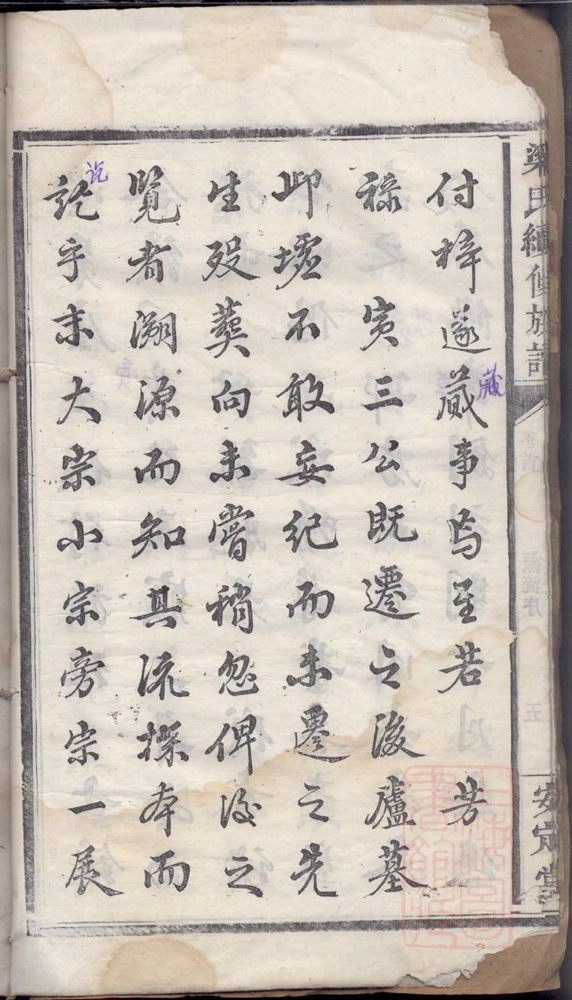 梁氏續修族譜
卷首
源流序
五
安定堂
付梓遂蕆事焉至若 芳
藏
祿 寅三公既遷之後廬墓
邱墟不敢妄紀而未遷之先
生歿葬向未嘗稍忽俾後之
覽者溯源而知其流探本而
訖乎末大宗小宗旁宗一展
訖